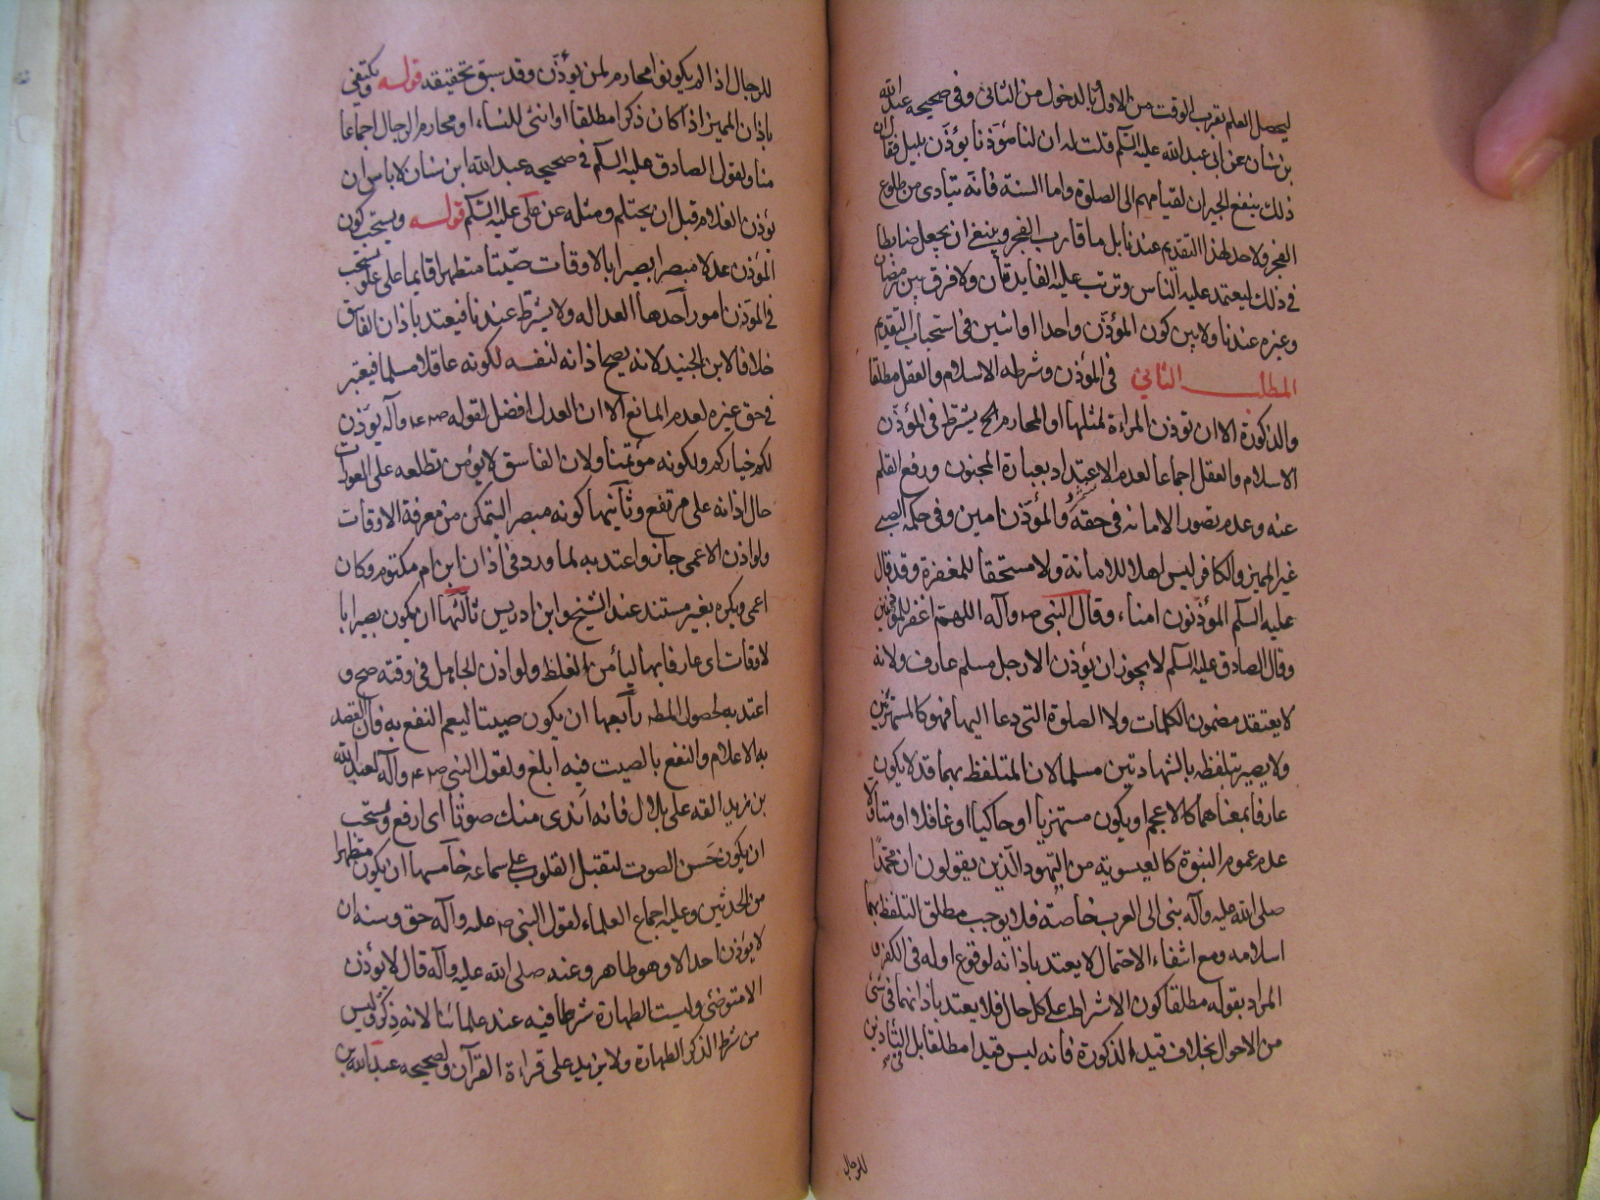 ليحصل العلم بقرب الوقت من الاول وبالدخول من الثاني وفي صحيحه عبد الله
بن سنان عن ابي عبد الله عليه السلم قلت له ان لنا مؤذنا يؤذن بليل فقال ان
ذلك ينفع الجيران لقيامهم الى الصلوة واما السنة فانه يتادى من طلوع
الفجر ولا حد لهذا التقديم عندنا بل ما قارب الفجر وينبغي ان يجعل ضابطا
في ذلك ليعتمد عليه الناس وترتب عليه الفايدتان ولا فرق بين رمضان
وغيره عندنا ولا بين كون المؤذن واحدا او اثنين في استحباب التقديم
المطلب الثاني في المؤذن وشرطه الاسلام والعقل مطلقا
والذكورة الا ان تؤذن المراءة لمثلها او المحارم الخ يشترط في المؤذن
الاسلام والعقل اجماعا لعدم الاعتداد بعبارة المجنون ورفع القلم
عنه وعدم تصور الامانه في حقه والمؤذن امين وفي حكمه الصبي
غير المميز والكافر ليس اهلا للامانة ولا مستحقا للمغفرة وقد قال
عليه السلم المؤذنون امناء وقال النبي ص وآله اللهم اغفر للمؤذنين
وقال الصادق عليه السلم لا يجوز ان يؤذن الا رجل مسلم عارف ولانه
لا يعتقد مضمون الكلمات ولا الصلوة التي دعا اليها فهو كالمستهزئ
ولا يصير بتلفظه بالشهادتين مسلما لان المتلفظ بهما قد لا يكون
عارفا بمعناهما كالاعجم او يكون مستهزيا او حاكيا او غافلا او متاولا
عدم عموم النبوة كالعيسوية من اليهود الذين يقولون ان محمدا
صلى الله عليه وآله نبي الى العرب خاصة فلا يوجب مطلق التلفظ بهما
اسلامه ومع انتفاء الاحتمال لا يعتد باذانه لوقوع اوله في الكفر و
المراد بقوله مطلقا كون الاشراط على كل حال فلا يعتد باذانهما في شئ
من الاحوال بخلاف قيد الذكورة فانه ليس قيدا مطلقا بل التاذين
للرجال
للرجال اذا لم يكونوا محارم لمن يؤذن وقد سبق تحقيقه قوله ويكتفي
باذان المميز اذا كان ذكرا مطلقا او انثى للنساء او محارم الرجال اجماعا
منا ولقول الصادق عليه السلم في صحيحه عبد الله ابن سنان لا باس ان
يؤذن الغلام قبل ان يحتلم ومثله عن علي عليه السلم قوله ويستحب كون
المؤذن عدلا مبصرا بصيرا بالاوقات صيتا متطهرا قايما على علو يستحب
في المؤذن امور احدها العداله ولا يشترط عندنا فيعتد باذان الفاسق
خلافا لابن الجنيد لانه يصح اذانه لنفسه لكونه عاقلا مسلما فيعتبر
في حق غيره لعدم المانع الا ان العدل افضل لقوله ص ع وآله يؤذن
لكم خياركم ولكونه مؤتمنا ولان الفاسق لا يؤمن تطلعه على العورات
حال اذانه على مرتفع وثانيها كونه مبصرا ليتمكن من معرفة الاوقات
ولو اذن الاعمى جاز واعتد به لما ورد في اذان ابن ام مكتوم وكان
اعمى ويكره بغير مستند عند الشيخ وابن ادريس ثالثها ان يكون بصيرا با
لاوقات اى عارفا بها ليامن الغلط ولو اذن الجاهل في وقته صح و
اعتد به لحصول المط رابعها ان يكون صيتا ليعم النفع به فان القصد
به الاعلام والنفع بالصيت فيه ابلغ ولقول النبي ص ع وآله لعبد الله
بن زيد القه على بلال فانه اندى منك صوتا اى ارفع ويستحب
ان يكون حسن الصوت لتقبل القلوب على سماعه خامسها ان يكون متطهرا
من الحدثين وعليه اجماع العلماء لقول النبي ص عله وآله حق وسنه ان
لا يؤذن احد الا وهو طاهر وعنه صلى الله عليه وآله قال لا يؤذن
الا متوضئ وليست الطهارة شرطا فيه عند علمائنا لانه ذكر وليس
من شرط الذكر الطهارة ولا يزيد على قراءة القرآن ولصحيحه عبد الله بن